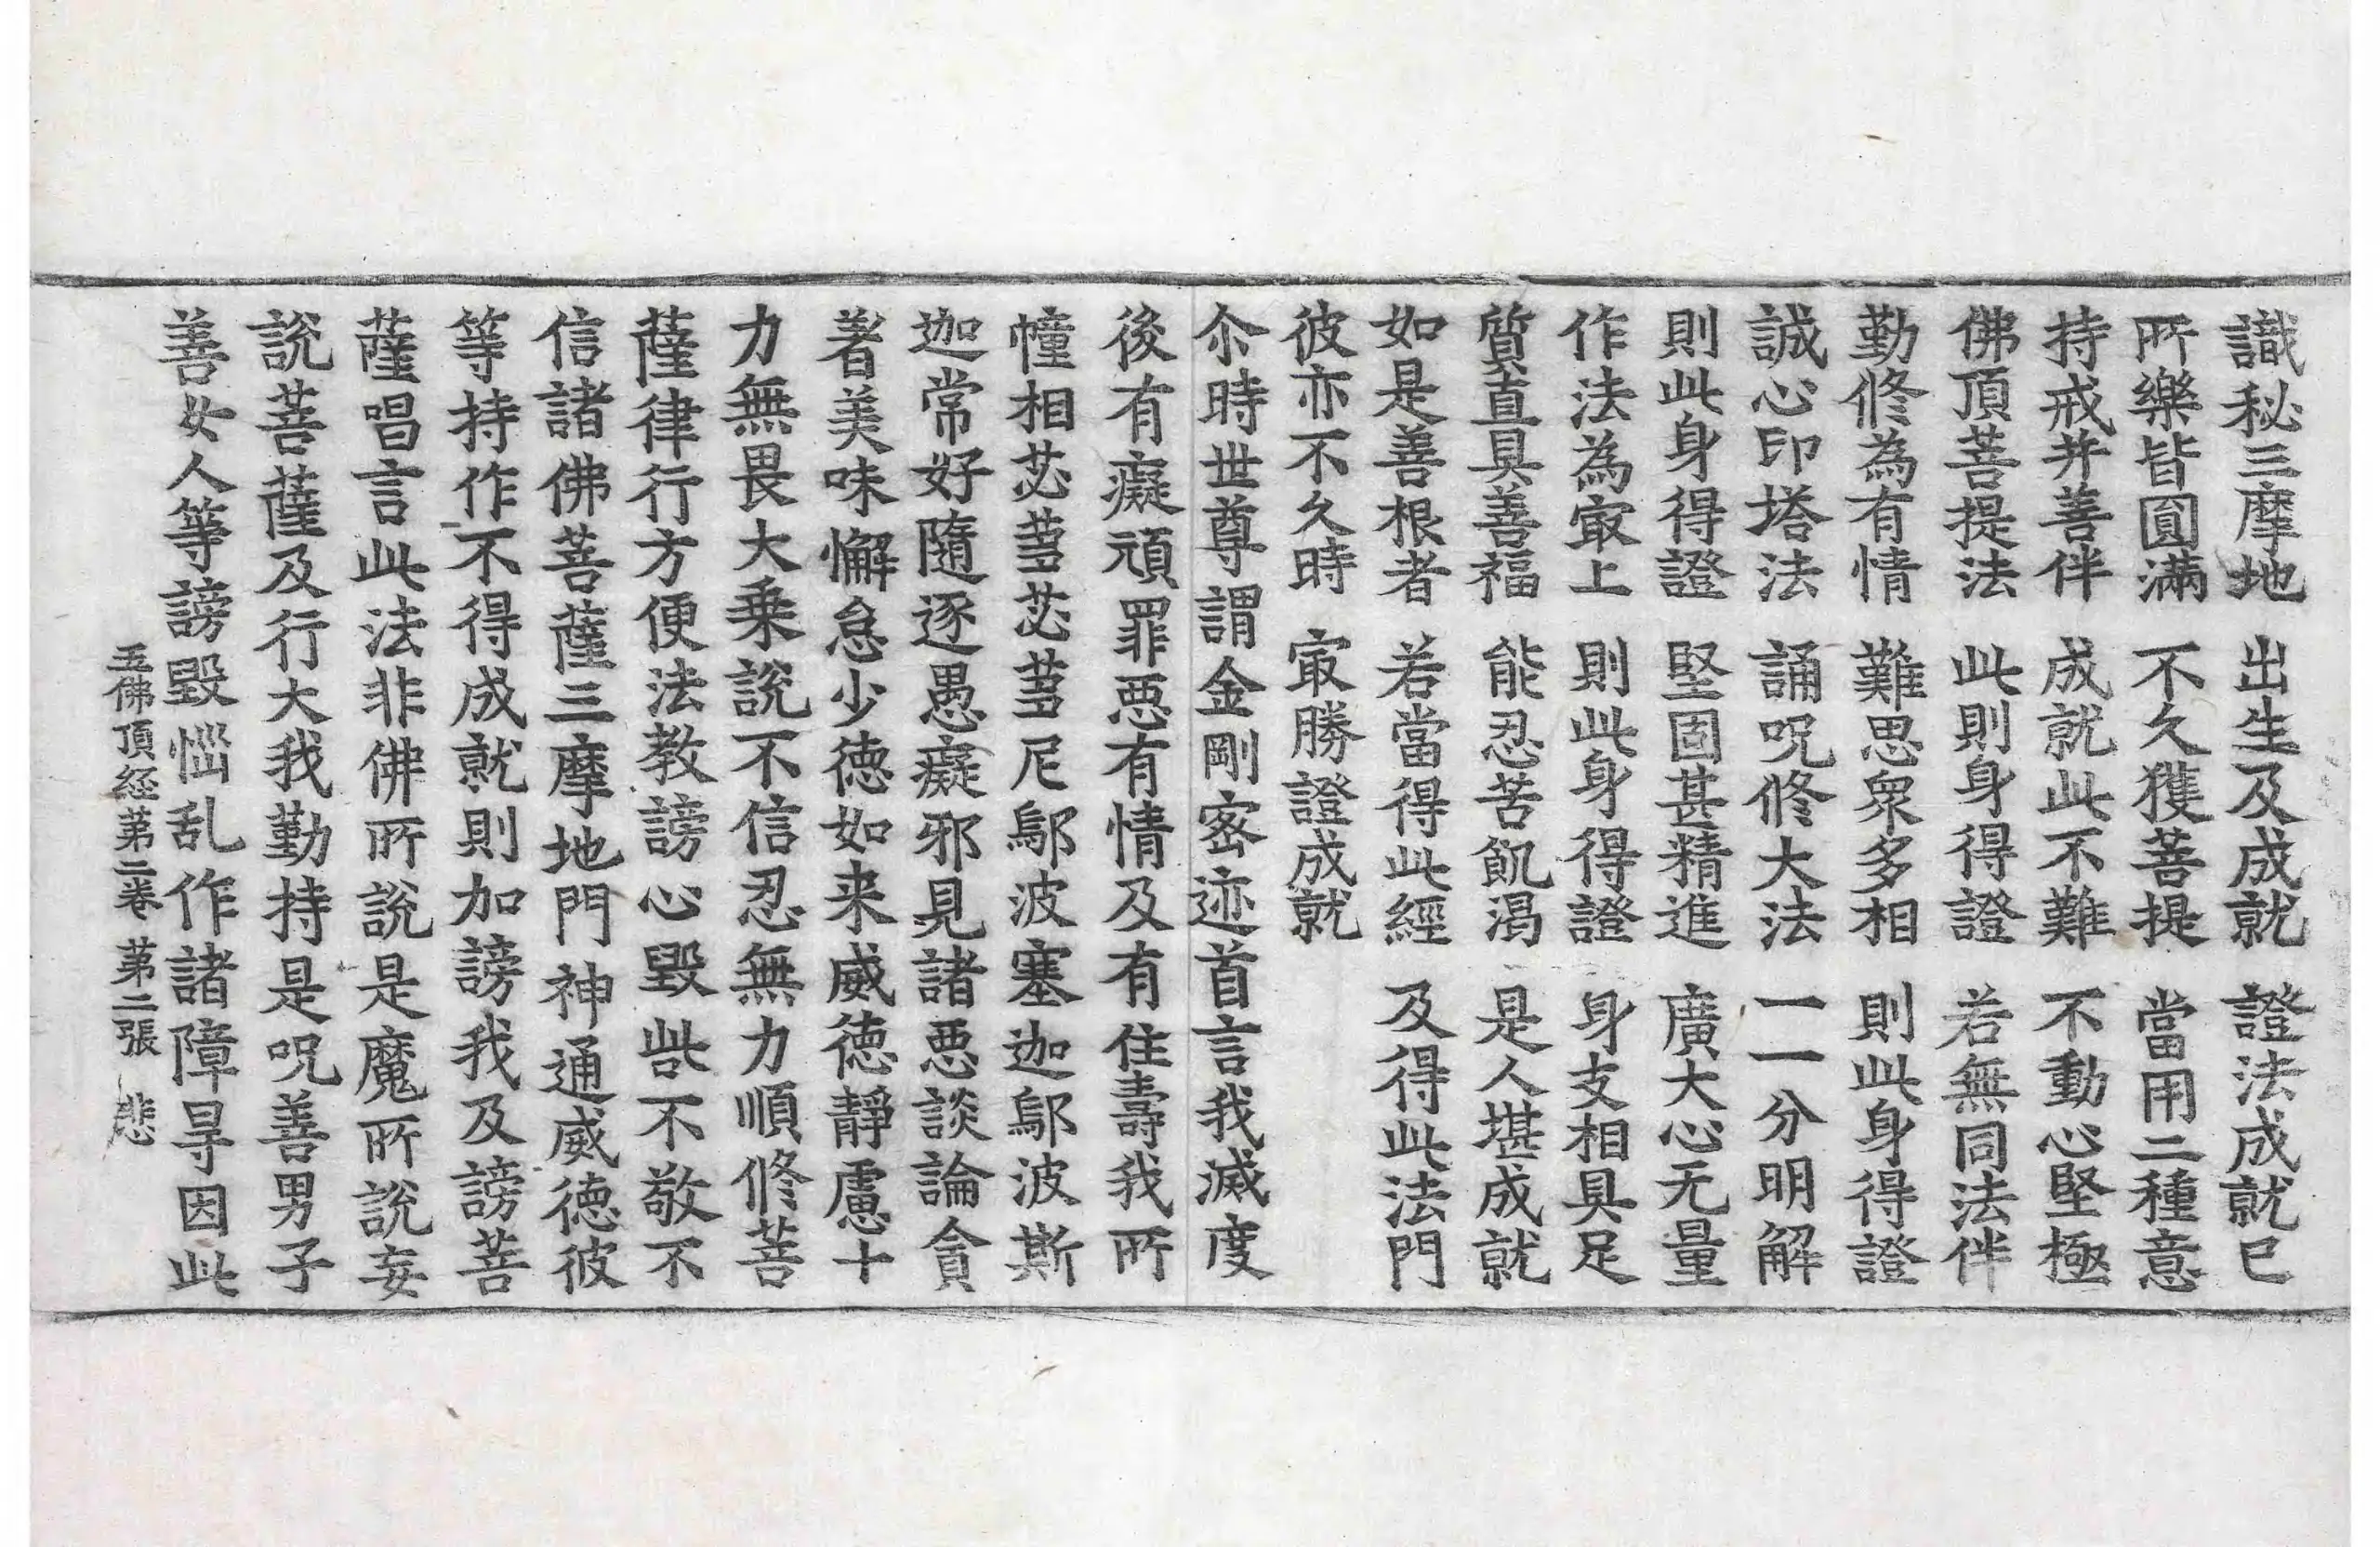 識秘三摩地　出生及成就　證法成就已
所樂皆圓滿　不久獲菩提　當用二種意
持戒并善伴　成就此不難　不動心堅極
佛頂菩提法　此則身得證　若無同法伴
勤修為有情　難思眾多相　則此身得證
誠心印塔法　誦呪修大法　一一分明解
則此身得證　堅固甚精進　廣大心无量
作法為㝡上　則此身得證　身支相具足
質直具善福　能忍苦飢渴　是人堪成就
如是善根者　若當得此經　及得此法門
彼亦不久時　㝡勝證成就
尒時世尊謂金剛密迹首言我滅度
後有癡頑罪惡有情及有住壽我所
幢相苾蒭苾蒭尼鄔波塞迦鄔波斯
迦常好隨逐愚癡邪見諸惡談論貪
著美味懈怠少德如来威德靜慮十
力無畏大乗說不信忍無力順修菩
薩律行方便法教謗心毀呰不敬不
信諸佛菩薩三摩地門神通威德彼
等持作不得成就則加謗我及謗菩
薩唱言此法非佛所說是魔所說妄
說菩薩及行大我勤持是呪善男子
善女人等謗毀惱乱作諸障㝵因此
五佛頂經第二卷　第二張　悲